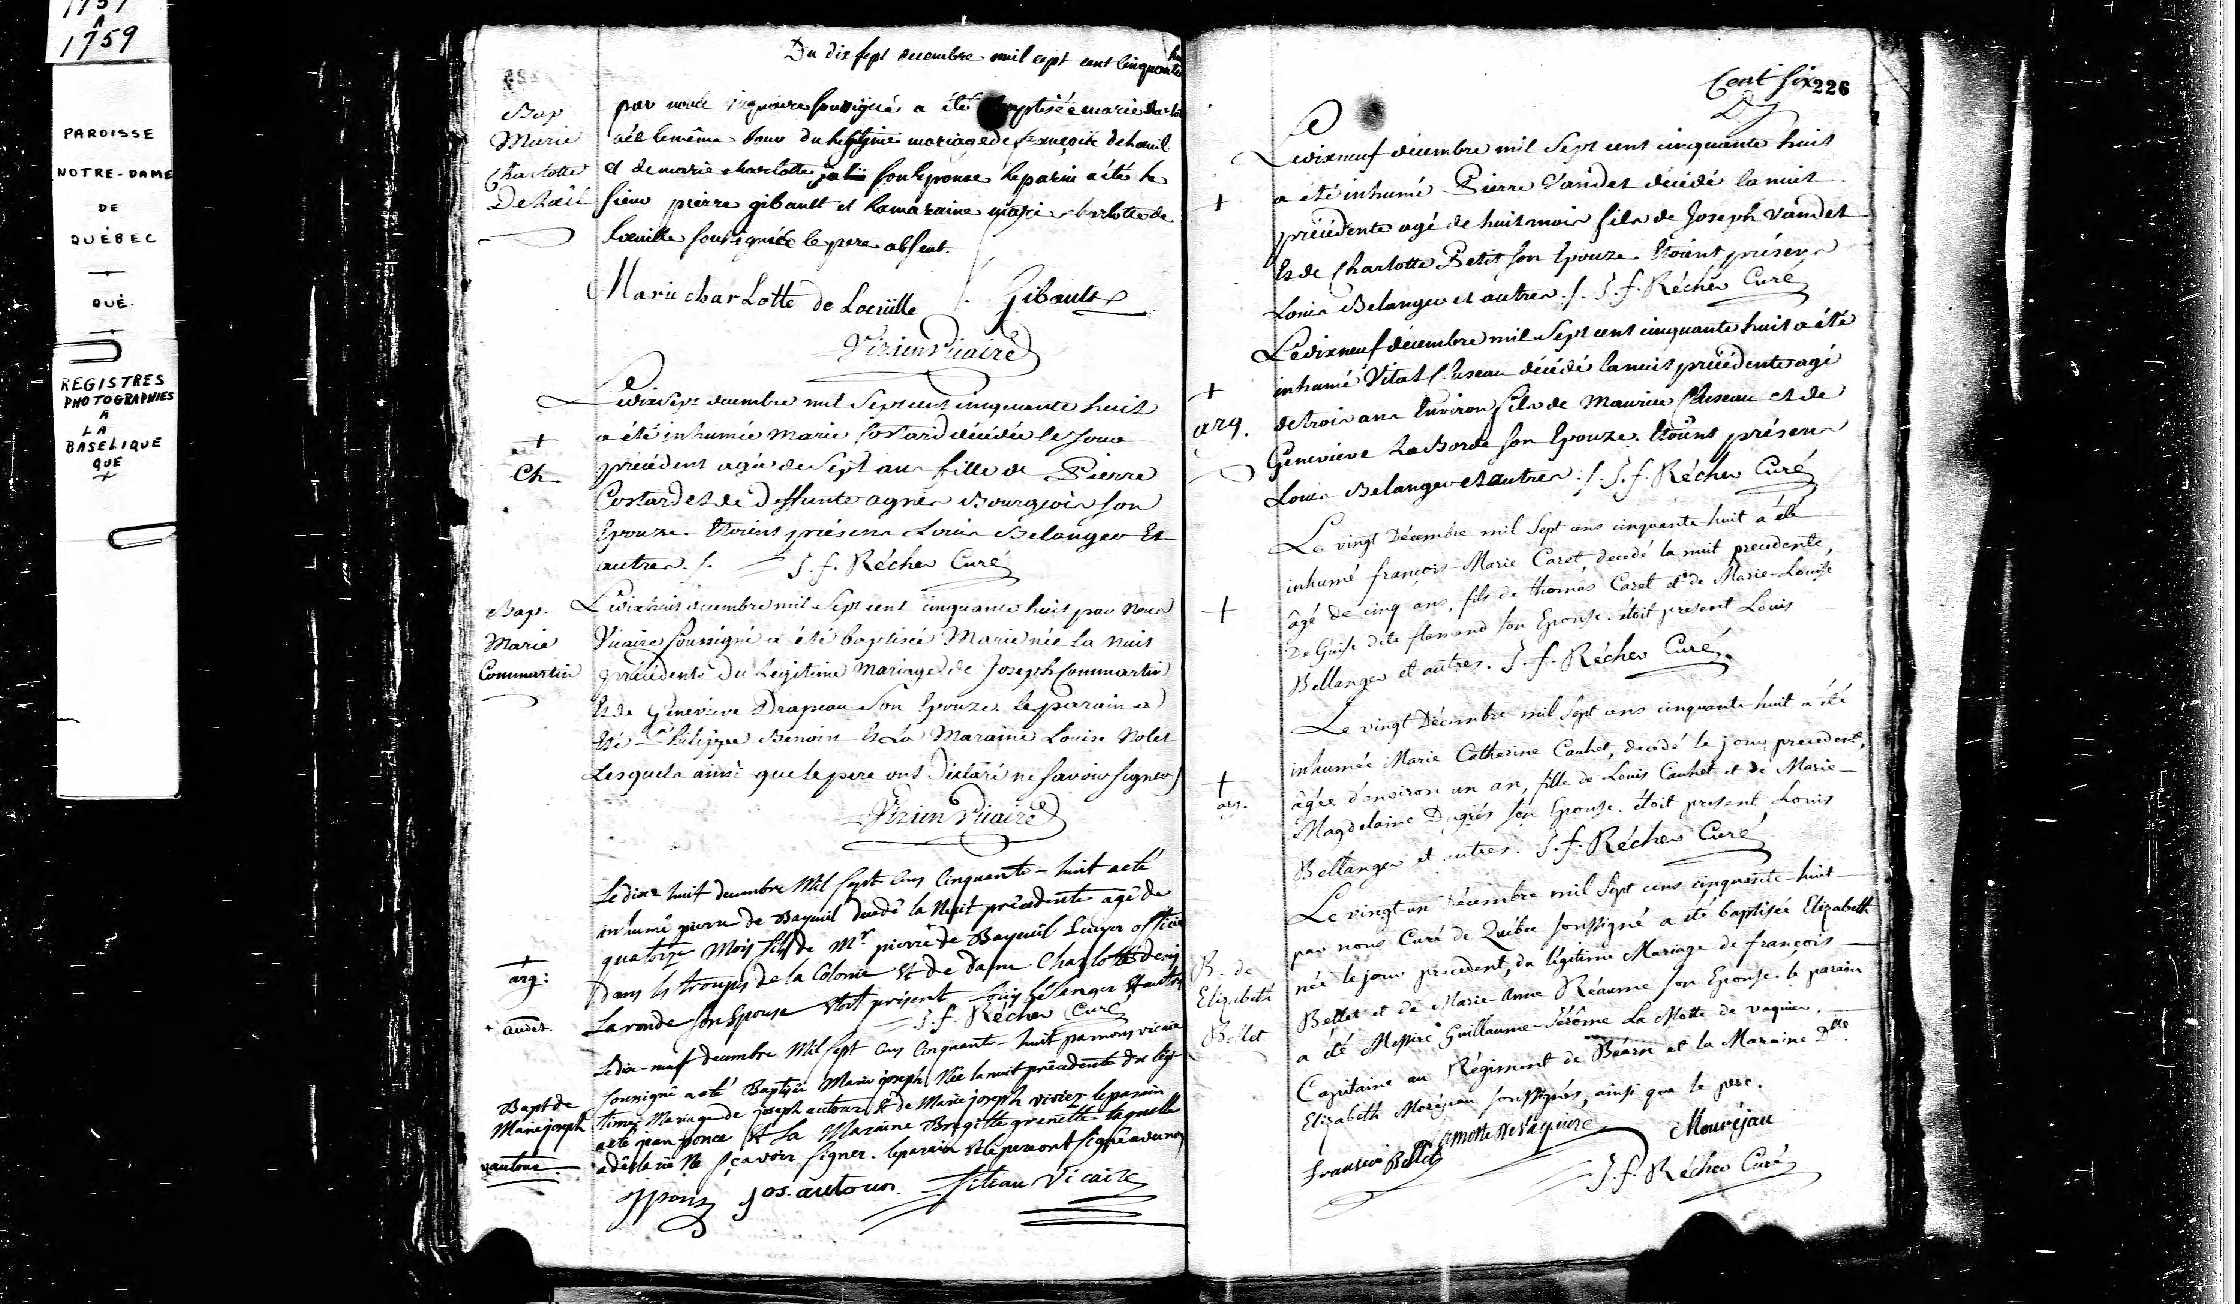 1757
A
1759
PAROISSE
NOTRE-DAME
DE
QUÉBEC
QUÉ.
REGISTRES
PHOTOGRAPHIES
A
LA
BASELIQUE
QUÉ
Du dix sept decembre mil sept cent cinquante
Bap
Marie
Charlotte
par nous soussigné a été baptisée marie
née le même jour du légitime mariage de
et de marie charlotte son Epouse le parin a été le
sieur pierre gibault et la maraine marie charlotte de
Loeuille soussignés le pere absent.
Marie charLotte de Loeuille Gibault
Vizien Vicaire
Le dixsept decembre mil Sept cent cinquante huit
+
Ch
a été inhumée Marie Costard décédée le jour
précédent agée de Sept ans fille de Pierre
Costard et de deffunte agnès Bourgeois son
Epouze. Etoient présens Louis Belanger Et
autres ./. J. f. Récher Curé
Bap.
Marie
Commartin
Le dixhuit decembre mil Sept cent cinquante huit par Nous
Vicaire soussigné a été baptisée Marie née La nuit
précédente Du Legitime Mariage de Joseph Commartin
Et de Genevieve Drapeau Son Epouze. Le parain a
été Philippe Benoin Et La Maraine Louise Nolet
Lesquels ainsi que le pere ont Déclaré ne Savoir signer
Vizien Vicaire
+
arg:
Le dix huit decembre Mil sept cens Cinquante-huit a eté
inhumé pierre de Bayeuil decedé la Nuit précedente agé de
quatorze Mois fils de Mr. pierre de Bayeuil Ecuyer officier
Dans les troupes de la Colonie Et de Dame Charlotte denis
La ronde son Epouse Etoit présent Louis bélenger Et autres
J. f. Récher Curé
Bapt de
Marie joseph
autour
Le dix-neuf decembre Mil sept cens Cinquante-huit par nous vicaire
soussigné a eté Baptisée Marie joseph Née la nuit précedente du legi-
time Mariage de joseph autour Et de Marie joseph vivier le parain
a eté jean ponce Et La Maraine Brigitte grenette laquelle
a déclaré Ne sçavoir signer. le parain Et le pere ont signé avec nous
Jos. autour Vicaire
Cent six 226
Le dixneuf décembre mil Sept cent cinquante huit
+
a été inhumé Pierre Vandet décédé la nuit
précédente agé de huit mois fils de Joseph Vandet
Et de Charlotte Petit son Epouze. Etoient présens
Louis Belanger et autres ./. J. f. Récher Curé
Le dixneuf décembre mil Sept cent cinquante huit a été
+
arg.
inhumé Vital Cluseau décédé la nuit précédente agé
de trois ans Environ fils de Maurice Cluseau et de
Genevieve LaBorde son Epouze. Etoient présens
Louis Belanger et autres ./. J. f. Récher Curé
Le vingt Décembre mil Sept cens cinquante huit a été
+
inhumé françois-Marie Caret, decedé la nuit precedente,
âgé de cinq ans, fils de thomas Caret et de Marie-Louise
De Guise dite flamand son Epouse. étoit present Louis
Bellanger et autres. J. f. Récher Curé.
Le vingt Décembre mil Sept cens cinquante huit a été
+
arg.
inhumée Marie Catherine Cauhet, decedé le jour precedent,
âgée d'environ un an, fille de Louis Cauhet et de Marie-
Magdelaine Dugrés son Epouse. étoit present Louis
Bellanger et autres. J. f. Récher Curé
B. de
Elizabeth
Bellet
Le vingt un Décembre mil Sept cens cinquante-huit
par nous Curé de Québec soussigné a été baptisée Elizabeth
née le jour precedent, du légitime Mariage de françois
Bellet et de Marie Anne Réaume son Epouse. le parain
a été Messire Guillaume-Jérôme La Motte de vaquier,
Capitaine au Régiment de Béarn et la Maraine Dlle
Elizabeth Moréjeau soussignés, ainsi que le pere.
françois Bellet Lamotte de Vaquier Mouréjau
J. f. Récher Curé